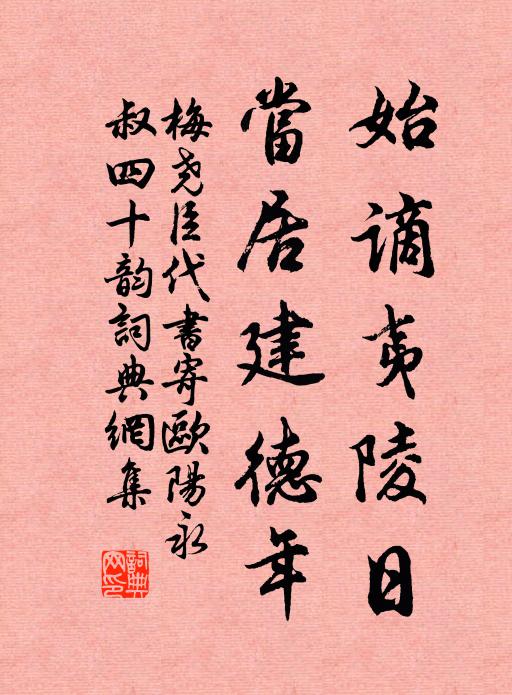 始謫夷陵日
當居建德年
梅尧臣代書寄歐陽永
叔四十韵詞典網集
詞典
网印